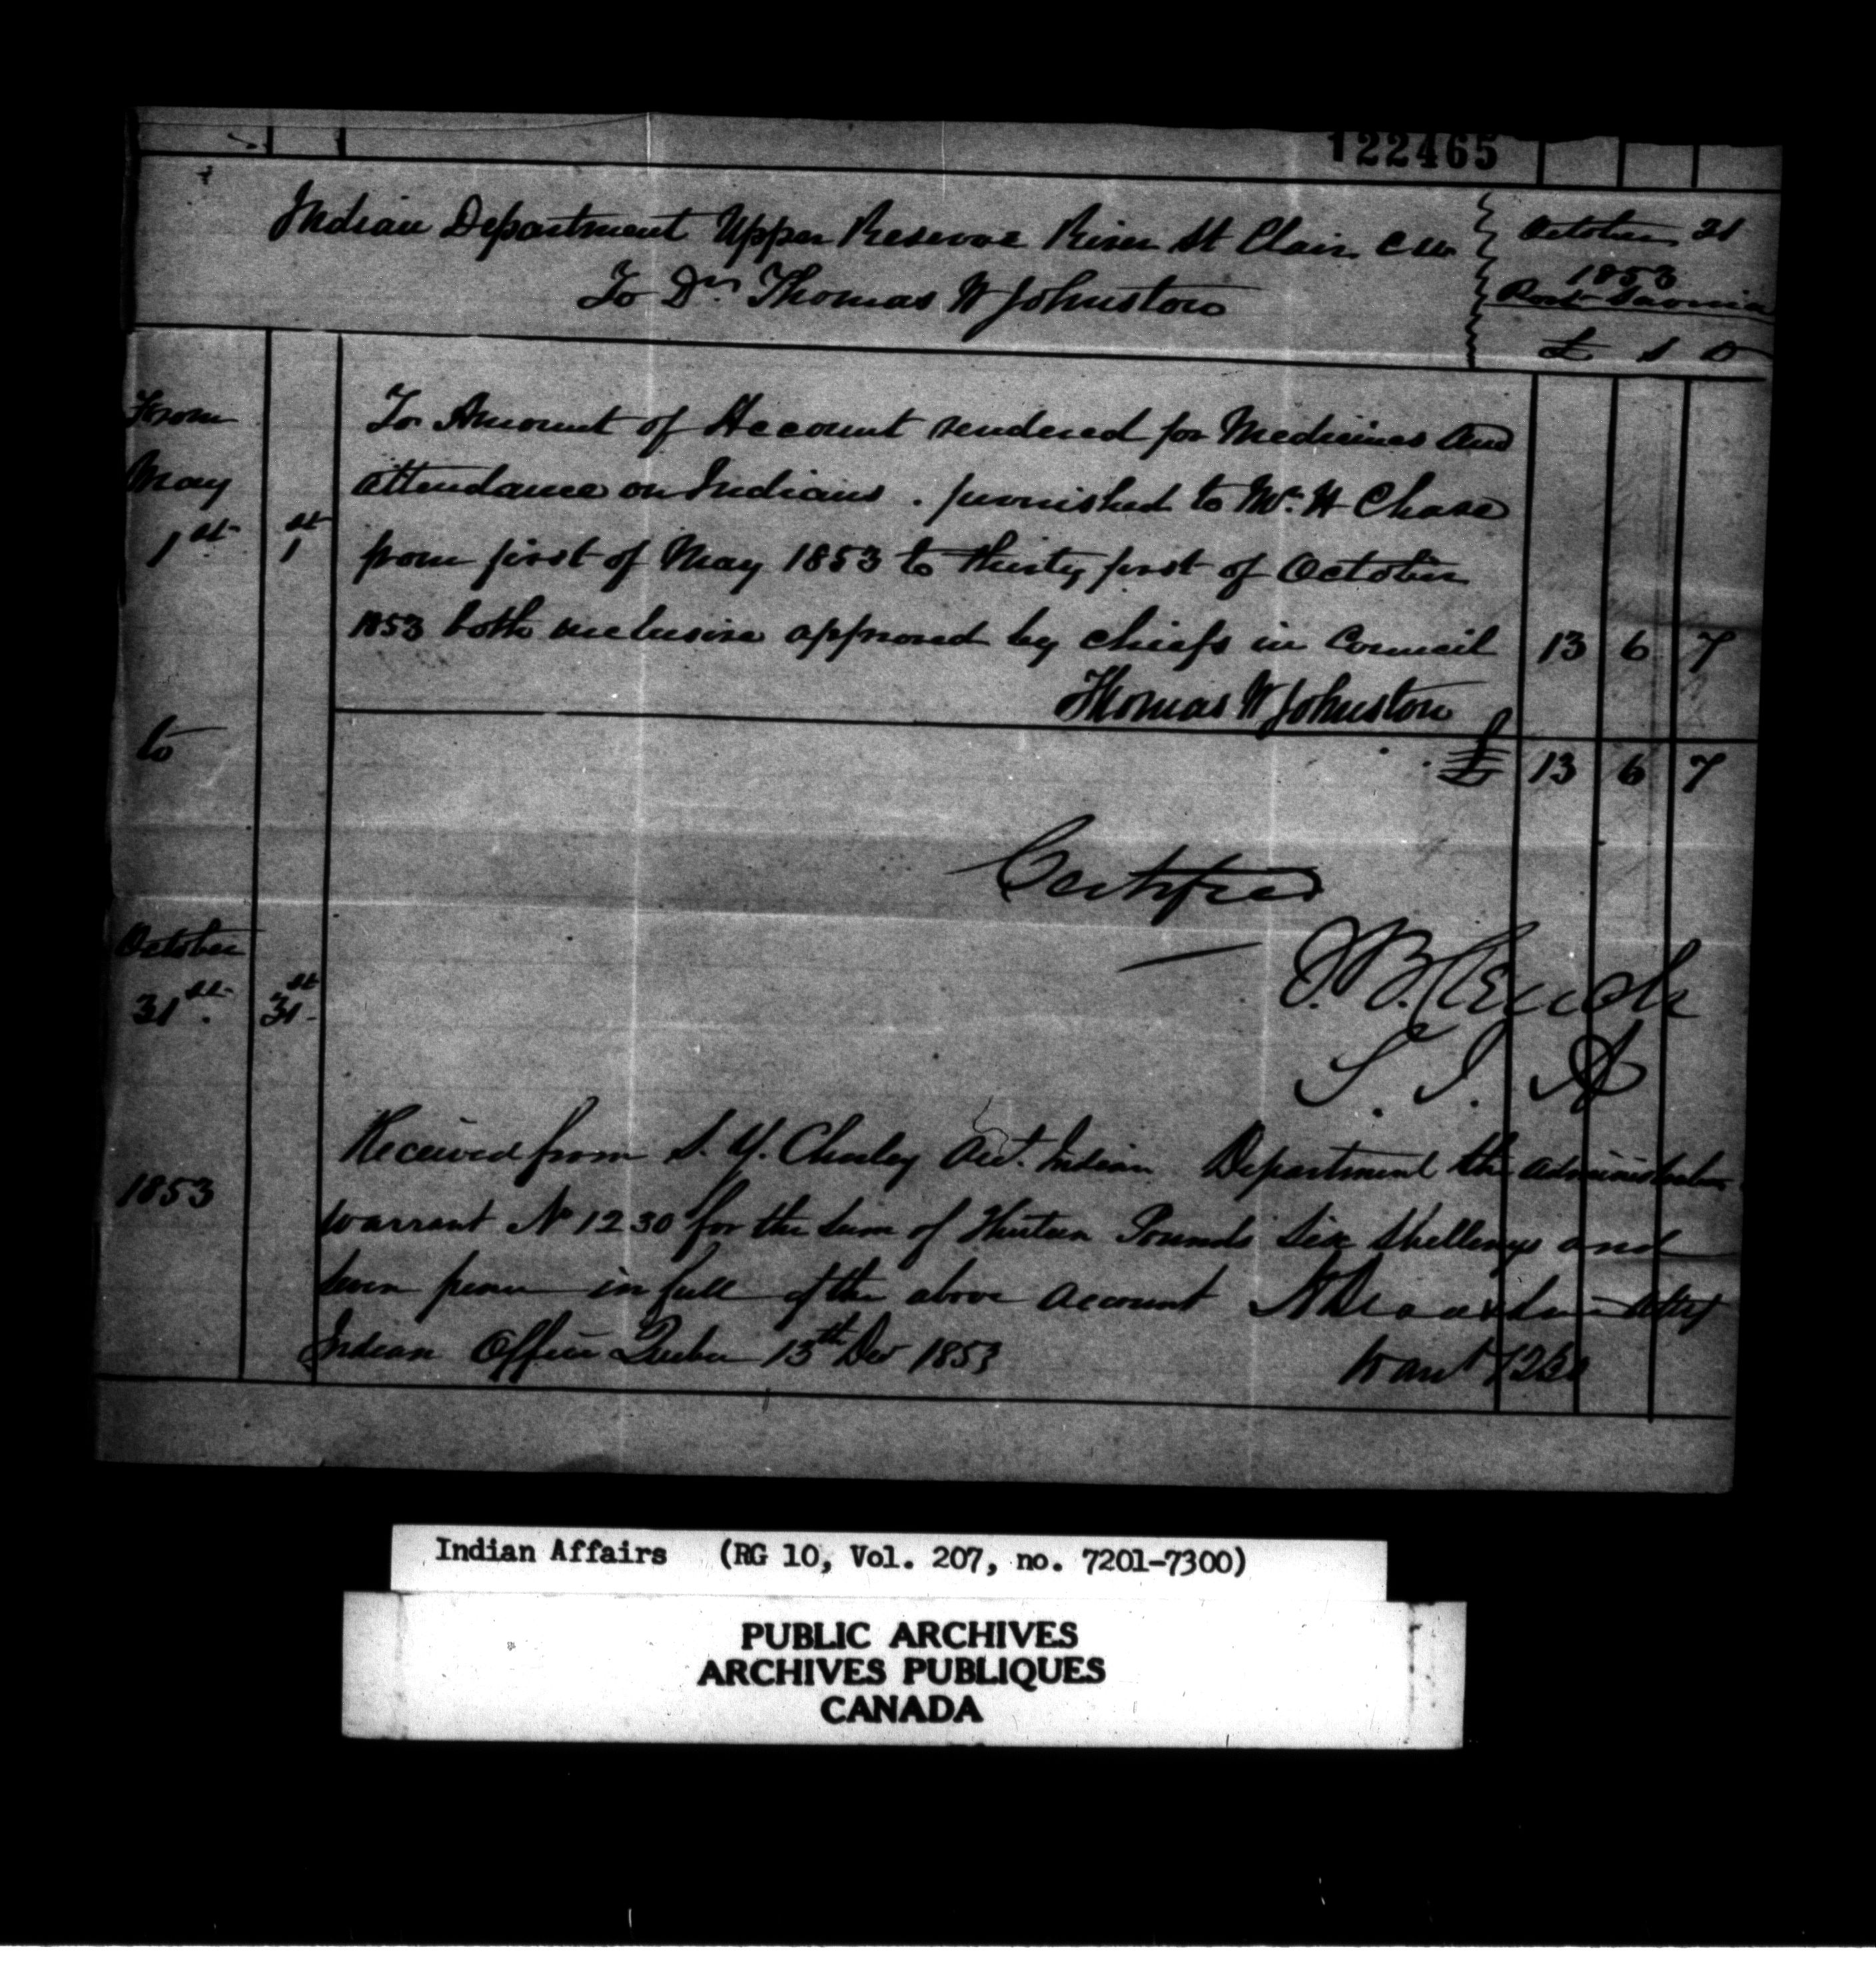 122465
Indian Department Upper Reserve River St Clair C W
October 31
1853
Port Sarnia
To Dr. Thomas W Johnston
£ s D
From
May
1st 1st
To Amount of Account rendered for Medicines and
attendance on Indians . furnished to Mr. H Chase
from first of May 1853 to thirty first of October
1853 both inclusive approved by chiefs in Council 13 6 7
Thomas W Johnston
to
£ 13 6 7
Certified
J. B. Clench
S. I. A
October
31st. 31st
1853
Received from S. Y. Chesley Act. Indian Department the administration
warrant No 1230 for the Sum of Thirteen Pounds Six Shillings and
Seven pence in full of the above account
Indian Office Quebec 15th Dec 1853
Indian Affairs (RG 10, Vol. 207, no. 7201-7300)
PUBLIC ARCHIVES
ARCHIVES PUBLIQUES
CANADA